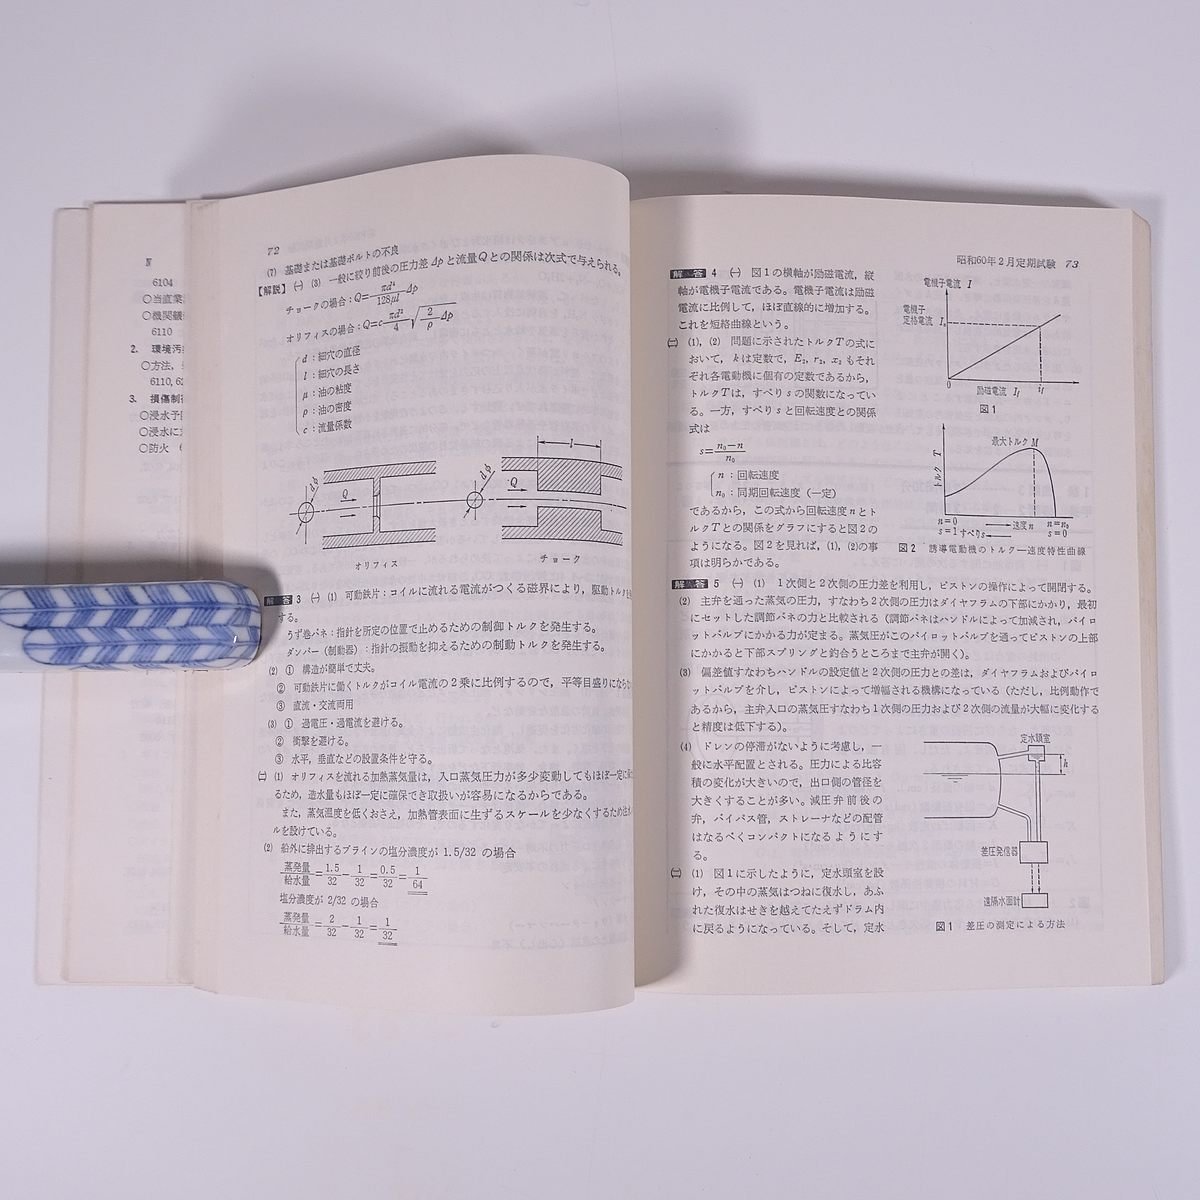 N
6104
6110
2. 環境汚
○方法，
3. 損傷制
○浸水予
○浸水に
○防火
72
(7) 基礎または基礎ボルトの不良
【解説】㈠ (3) 一般に絞り前後の圧力差Δpと流量Qとの関係は次式で与えられる。
チョークの場合：Q=πd⁴/128μl Δp
オリフィスの場合：Q=c πd²/4 √(2/ρ Δp)
d：細穴の直径
l：細穴の長さ
μ：油の粘度
ρ：油の密度
c：流量係数
dφ Q オリフィス
dφ Q l チョーク
解答 3 ㈠ (1) 可動鉄片：コイルに流れる電流がつくる磁界により，駆動トルクを
する。
うず巻バネ：指針を所定の位置で止めるための制御トルクを発生する。
ダンパー（制動器）：指針の振動を抑えるための制動トルクを発生する。
(2) ① 構造が簡単で丈夫。
② 可動鉄片に働くトルクがコイル電流の2乗に比例するので，平等目盛りになら
③ 直流・交流両用
(3) ① 過電圧・過電流を避ける。
② 衝撃を避ける。
③ 水平，垂直などの設置条件を守る。
㈡ (1) オリフィスを流れる加熱蒸気量は，入口蒸気圧力が多少変動してもほぼ一定に
るため，造水量もほぼ一定に確保でき取扱いが容易になるからである。
また，蒸気温度を低くおさえ，加熱管表面に生ずるスケールを少なくするため
ルを設けている。
(2) 船外に排出するブラインの塩分濃度が 1.5/32 の場合
蒸発量/給水量=1.5/32−1/32=0.5/32=1/64
塩分濃度が 2/32 の場合
蒸発量/給水量=2/32−1/32=1/32
昭和60年2月定期試験 73
解答 4 ㈠ 図1の横軸が励磁電流，縦
軸が電機子電流である。電機子電流は励磁
電流に比例して，ほぼ直線的に増加する。
これを短絡曲線という。
㈡ (1)，(2) 問題に示されたトルクTの式に
おいて，kは定数で，E₂，r₂，x₂もそれ
ぞれ各電動機に個有の定数であるから，
トルクTは，すべりsの関数になってい
る。一方，すべりsと回転速度との関係
式は
s=n₀−n/n₀
n：回転速度
n₀：同期回転速度（一定）
であるから，この式から回転速度nとト
ルクTとの関係をグラフにすると図2の
ようになる。図2を見れば，(1)，(2)の事
項は明らかである。
電機子電流 I
電機子
定格電流 Iₙ
0 励磁電流 If if
図1
最大トルク M
トルク T
n=0 速度n n=n₀
s=1 すべりs s=0
図2 誘導電動機のトルク―速度特性曲線
解答 5 ㈠ (1) 1次側と2次側の圧力差を利用し，ピストンの操作によって開閉する。
(2) 主弁を通った蒸気の圧力，すなわち2次側の圧力はダイヤフラムの下部にかかり，最初
にセットした調節バネの力と比較される（調節バネはハンドルによって加減され，パイロ
ットバルブにかかる力が定まる。蒸気圧がこのパイロットバルブを通ってピストンの上部
にかかると下部スプリングと釣合うところまで主弁が開く）。
(3) 偏差値すなわちハンドルの設定値と2次側の圧力との差は，ダイヤフラムおよびパイロ
ットバルブを介し，ピストンによって増幅される機構になっている（ただし，比例動作で
あるから，主弁入口の蒸気圧すなわち1次側の圧力および2次側の流量が大幅に変化する
と精度は低下する）。
(4) ドレンの停滞がないように考慮し，一
般に水平配置とされる。圧力による比容
積の変化が大きいので，出口側の管径を
大きくすることが多い。減圧弁前後の
弁，バイパス管，ストレーナなどの配管
はなるべくコンパクトになるようにす
る。
㈡ (1) 図1に示したように，定水頭室を設
け，その中の蒸気はつねに復水し，あふ
れた復水はせきを越えてたえずドラム内
に戻るようになっている。そして，定水
定水頭室
h
差圧発信器
遠隔水面計
図1 差圧の測定による方法